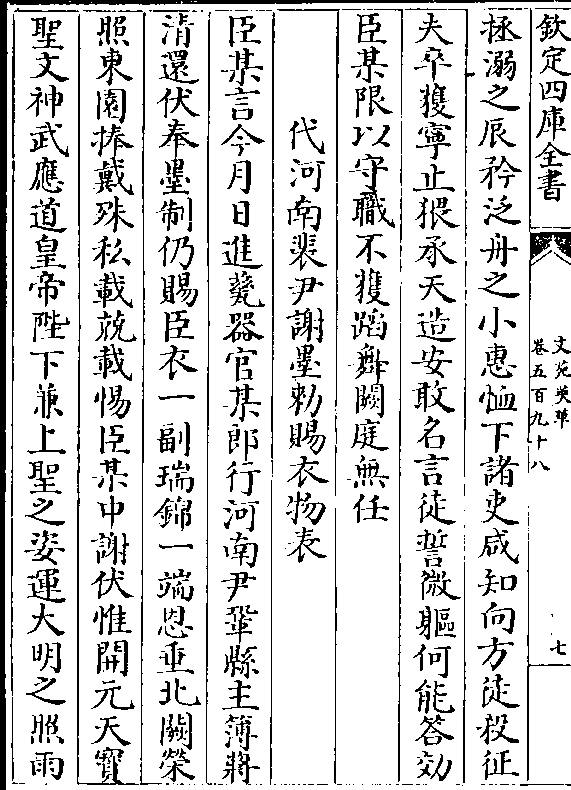 欽定四庫全書
文苑英華
卷五百九十八
七
拯溺之辰矜泛舟之小惠恤下諸吏咸知向方徒役征
夫卒獲寧止猥承天造安敢名言徒誓微軀何能答効
臣某限以守職不獲蹈舞闕庭無任
代河南裴尹謝墨勅賜衣物表
臣某言今月日進甆器官某郎行河南尹鞏縣主簿蔣
清還伏奉墨制仍賜臣衣一副瑞錦一端恩垂北闕榮
照東園捧戴殊私載兢載惕臣某中謝伏惟開元天寶
聖文神武應道皇帝陛下兼上聖之姿運大明之照雨